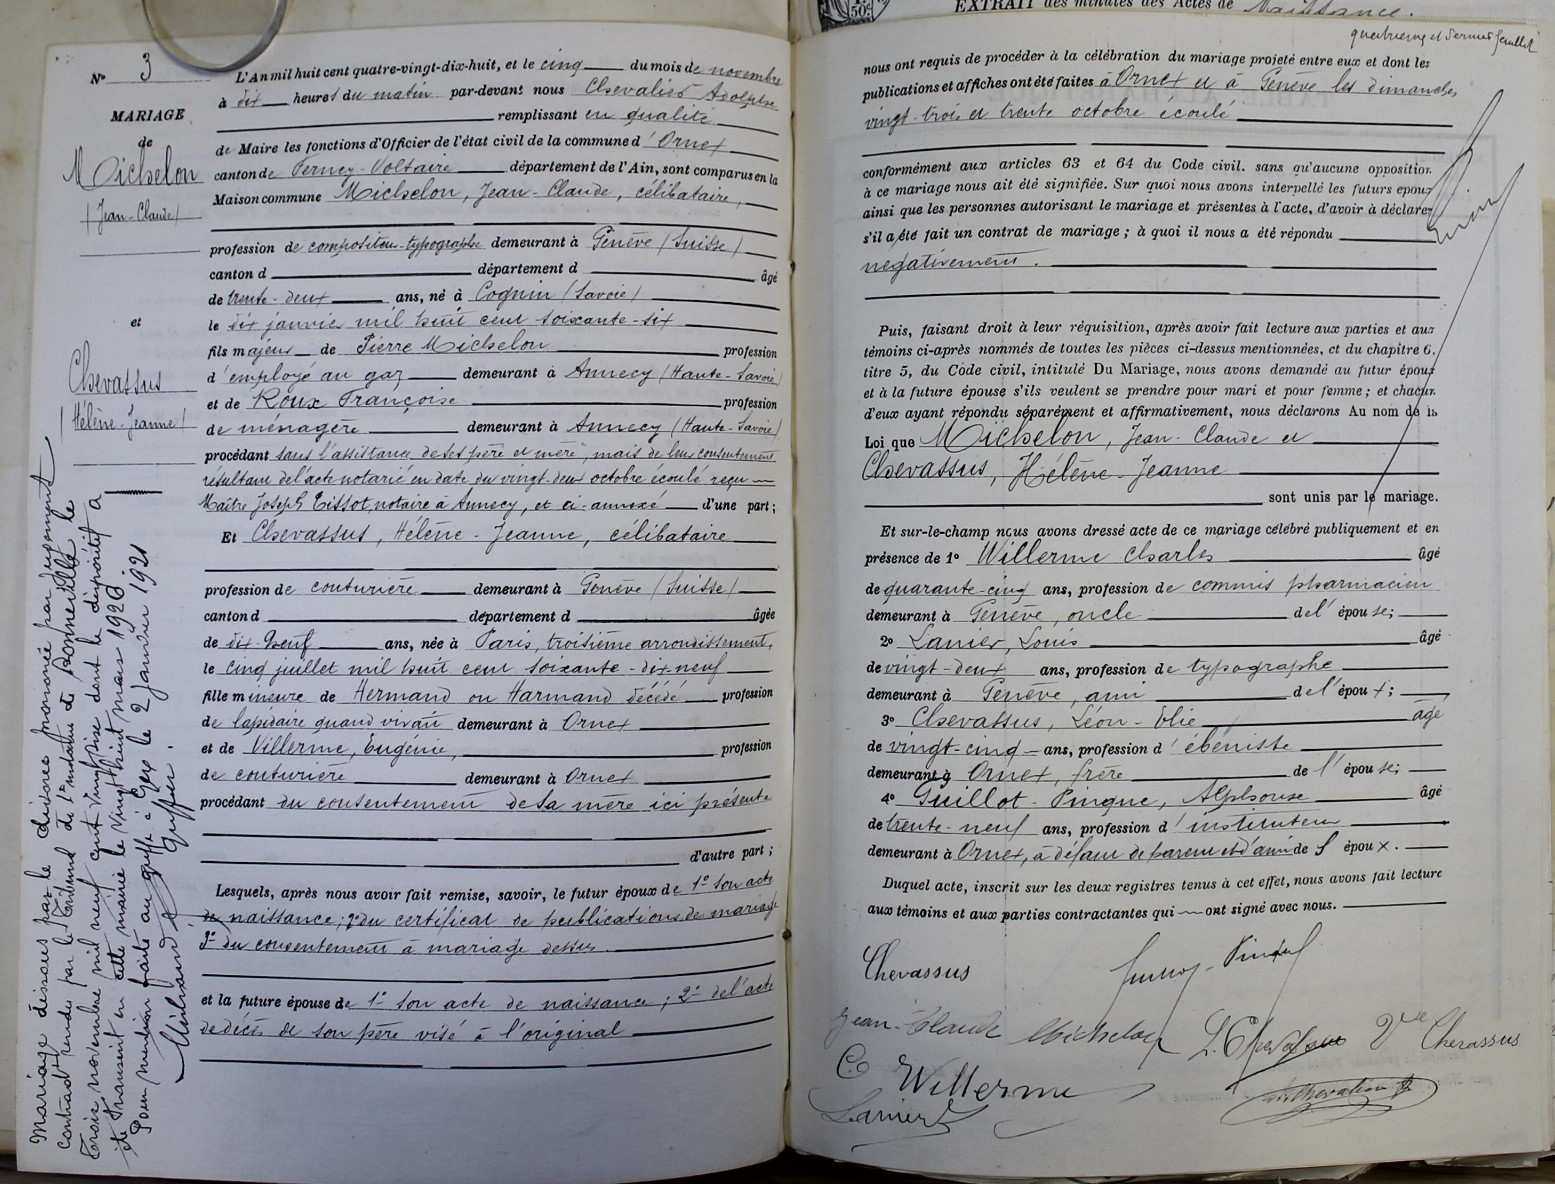 N° 3
MARIAGE
de
Michelon
(Jean-Claude)
et
Chevassus
(Hélène-Jeanne)
Mariage dissous par le divorce prononcé par jugement
contradictoire rendu par le Tribunal de 1re instance de Bonneville le
trois novembre mil neuf cent vingt
et transcrit en cette mairie le vingt huit mars 1920
Pour mention faite au greffe à Gex le 2 Janvier 1921
L'An mil huit cent quatre-vingt-dix-huit, et le cinq du mois de novembre
à dix heures du matin par-devant nous Chevalier Adolphe
remplissant en qualité
de Maire les fonctions d'Officier de l'état civil de la commune d'Ornex
canton de Ferney-Voltaire département de l'Ain, sont comparus en la
Maison commune Michelon, Jean-Claude, célibataire,
profession de compositeur-typographe demeurant à Genève (Suisse)
canton d département d âgé
de trente-deux ans, né à Cognin (Savoie)
le dix janvier mil huit cent soixante-six
fils majeur de Pierre Michelon profession
d'employé au gaz demeurant à Annecy (Haute-Savoie)
et de Roux Françoise profession
de ménagère demeurant à Annecy (Haute-Savoie)
procédant sans l'assistance de ses père et mère, mais de leur consentement
résultant de l'acte notarié en date du vingt-deux octobre écoulé reçu
Maître Joseph Tissot, notaire à Annecy, et ci-annexé d'une part;
Et Chevassus, Hélène-Jeanne, célibataire
profession de couturière demeurant à Genève (Suisse)
canton d département d âgée
de dix-neuf ans, née à Paris, troisième arrondissement,
le cinq juillet mil huit cent soixante-dix neuf
fille mineure de Hermand ou Harmand décédé profession
de lapidaire quand vivait demeurant à Ornex
et de Villerme, Eugénie, profession
de couturière demeurant à Ornex
procédant du consentement de sa mère ici présente
d'autre part;
Lesquels, après nous avoir fait remise, savoir, le futur époux de 1° son acte
de naissance; 2° du certificat de publications de mariage
3° du consentement à mariage dessus.
et la future épouse de 1° son acte de naissance; 2° de l'acte
de décès de son père visé à l'original
EXTRAIT des minutes des Actes de Naissance.
quatrième et dernier feuillet
nous ont requis de procéder à la célébration du mariage projeté entre eux et dont les
publications et affiches ont été faites à Ornex et à Genève les dimanches
vingt-trois et trente octobre écoulé
conformément aux articles 63 et 64 du Code civil. sans qu'aucune opposition
à ce mariage nous ait été signifiée. Sur quoi nous avons interpellé les futurs époux
ainsi que les personnes autorisant le mariage et présentes à l'acte, d'avoir à déclarer
s'il a été fait un contrat de mariage; à quoi il nous a été répondu
négativement.
Puis, faisant droit à leur réquisition, après avoir fait lecture aux parties et aux
témoins ci-après nommés de toutes les pièces ci-dessus mentionnées, et du chapitre 6.
titre 5, du Code civil, intitulé Du Mariage, nous avons demandé au futur époux
et à la future épouse s'ils veulent se prendre pour mari et pour femme; et chacun
d'eux ayant répondu séparément et affirmativement, nous déclarons Au nom de la
Loi que Michelon, Jean-Claude et
Chevassus, Hélène-Jeanne
sont unis par le mariage.
Et sur-le-champ nous avons dressé acte de ce mariage célébré publiquement et en
présence de 1° Willerme Charles âgé
de quarante-cinq ans, profession de commis pharmacien
demeurant à Genève, oncle de l'épouse;
2° Lanier, Louis âgé
de vingt-deux ans, profession de typographe
demeurant à Genève, ami de l'époux;
3° Chevassus, Léon-Elie âgé
de vingt-cinq ans, profession d'ébéniste
demeurant à Ornex, frère de l'épouse;
4° Guillot-Pingue, Alphonse âgé
de trente-neuf ans, profession d'instituteur
demeurant à Ornex, à défaut de parent et d'ami de l'époux.
Duquel acte, inscrit sur les deux registres tenus à cet effet, nous avons fait lecture
aux témoins et aux parties contractantes qui ont signé avec nous.
Chevassus
Jean-Claude Michelon L. Chevassus Vve Chevassus
C. Willerme
Lanier L